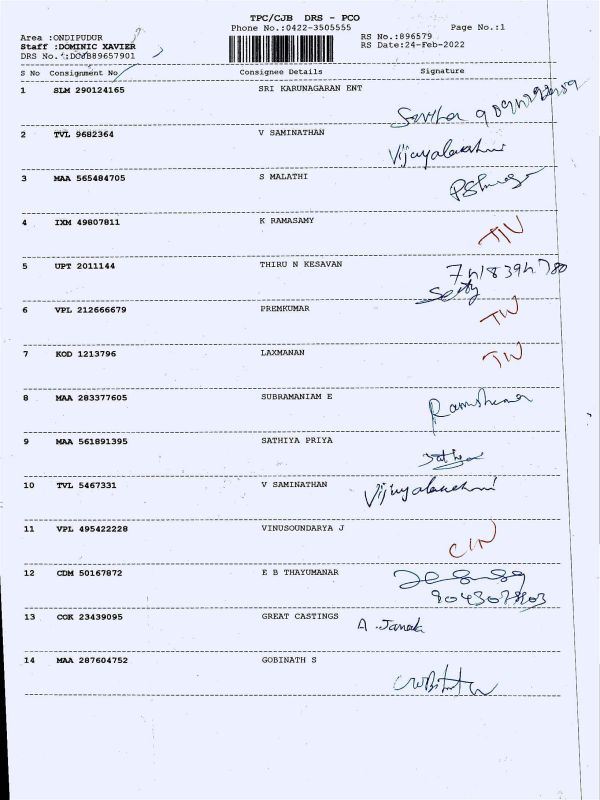 TPC/CJB DRS - PCO
Phone No.:0422-3505555 Page No.:1
Area :ONDIPUDUR RS No.:896579
Staff :DOMINIC XAVIER RS Date:24-Feb-2022
DRS No.:DOB89657901
S No Consignment No Consignee Details Signature
1 SLM 290124165 SRI KARUNAGARAN ENT
2 TVL 9682364 V SAMINATHAN
Vijayalakshmi
3 MAA 565484705 S MALATHI
4 IXM 49807811 K RAMASAMY
5 UPT 2011144 THIRU N KESAVAN
6 VPL 212666679 PREMKUMAR
7 KOD 1213796 LAXMANAN
8 MAA 283377605 SUBRAMANIAM E
9 MAA 561891395 SATHIYA PRIYA
10 TVL 5467331 V SAMINATHAN
Vijayalakshmi
11 VPL 495422228 VINUSOUNDARYA J
12 CDM 50167872 E B THAYUMANAR
13 COK 23439095 GREAT CASTINGS
A. Janaki
14 MAA 287604752 GOBINATH S